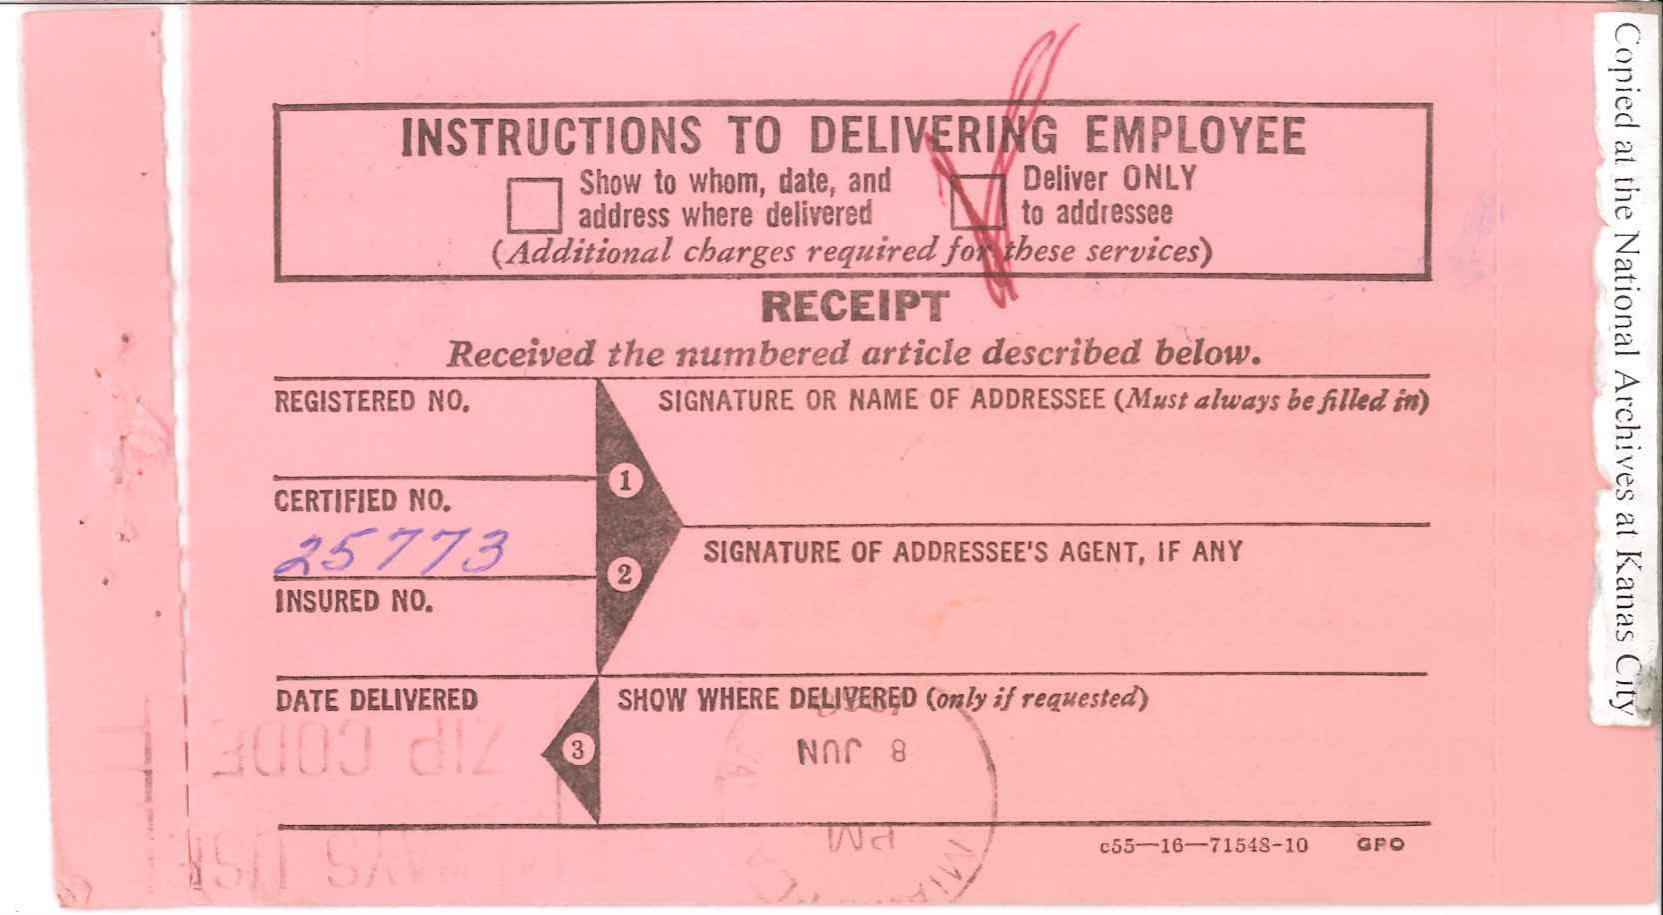 INSTRUCTIONS TO DELIVERING EMPLOYEE
Show to whom, date, and
address where delivered
Deliver ONLY
to addressee
(Additional charges required for these services)
RECEIPT
Received the numbered article described below.
REGISTERED NO.
SIGNATURE OR NAME OF ADDRESSEE (Must always be filled in)
1
CERTIFIED NO.
25773
SIGNATURE OF ADDRESSEE'S AGENT, IF ANY
2
INSURED NO.
DATE DELIVERED
SHOW WHERE DELIVERED (only if requested)
3
8 JUN
PM
ZIP CODE
c55—16—71548-10 GPO
Copied at the National Archives at Kanas City